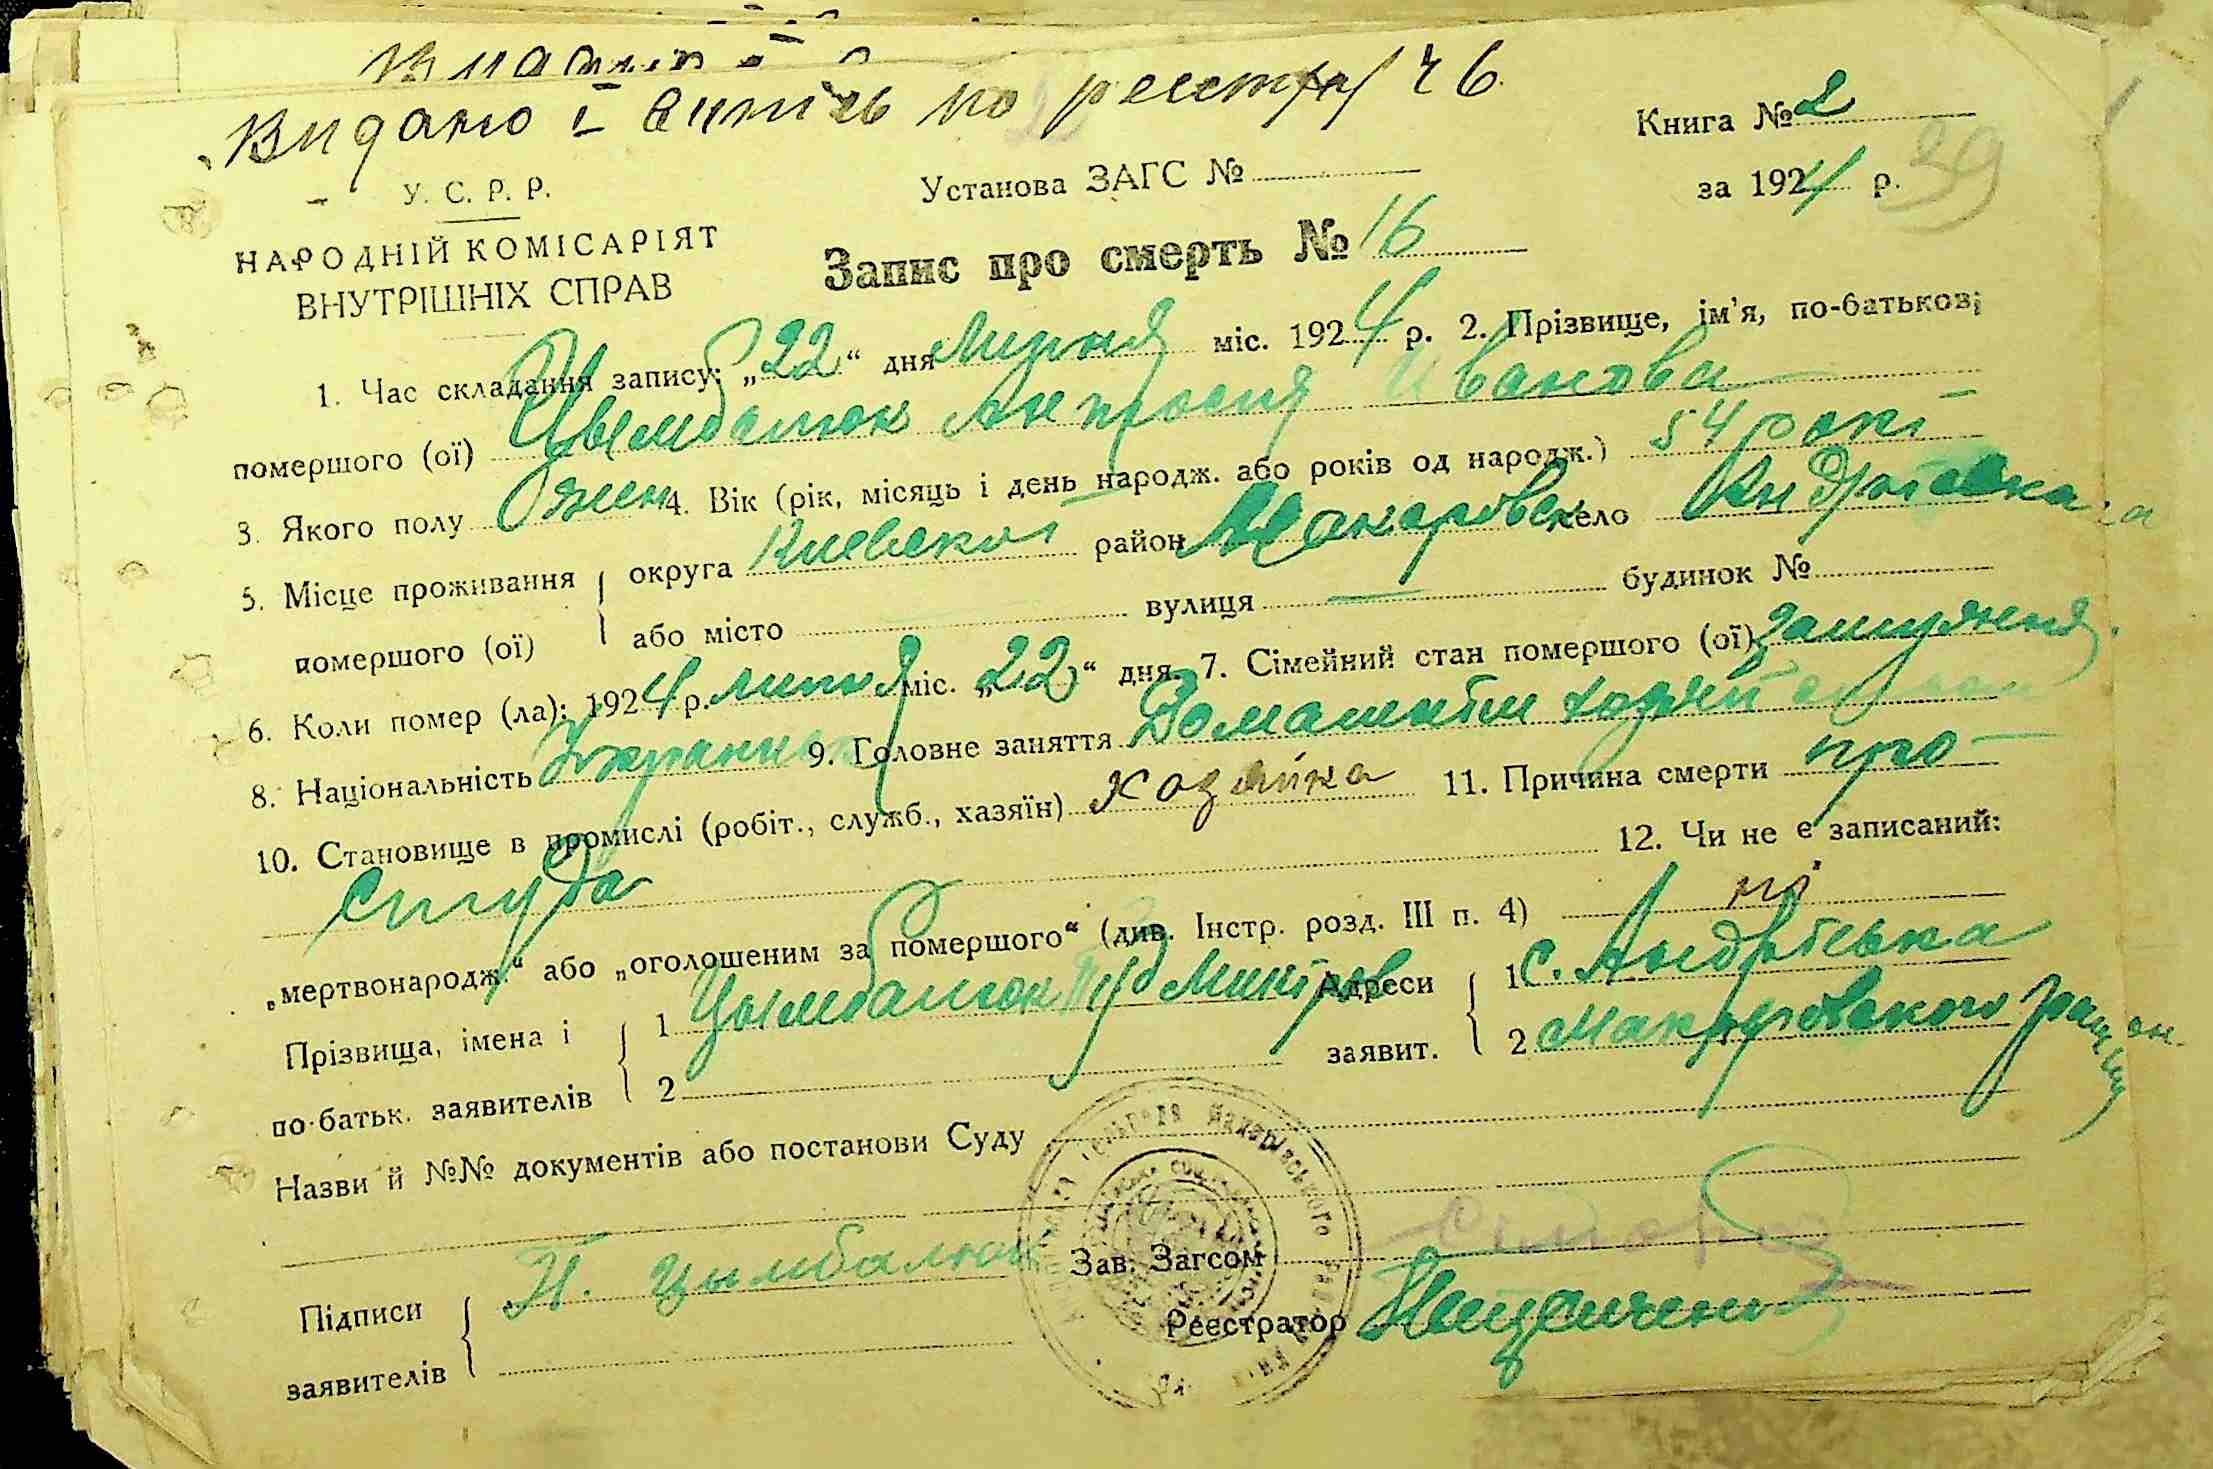 Видано і витяг по реєстру ч 6
Книга № 2
У. С. Р. Р.
Установа ЗАГС №
за 1924 р. 29
НАРОДНІЙ КОМІСАРІЯТ
ВНУТРІШНІХ СПРАВ
Запис про смерть № 16
1. Час складання запису: „22“ дня липня міс. 1924 р. 2. Прізвище, ім'я, по-батькові
помершого (ої) Цымбалюк Ивакова
3. Якого полу жен 4. Вік (рік, місяць і день народж. або років од народж.) 54 роки
5. Місце проживання округа Киевской район Макаровск село Андріевка
помершого (ої) або місто вулиця — будинок №
6. Коли помер (ла): 1924 р. липня міс. „22“ дня. 7. Сімейний стан помершого (ої) замужняя
8. Національність 9. Головне заняття Домашнім
10. Становище в промислі (робіт., служб., хазяїн) хозяйка 11. Причина смерти про-
студа 12. Чи не є записаний:
„мертвонародж.“ або „оголошеним за помершого“ (див. Інстр. розд. III п. 4) ні
Прізвища, імена і 1 Цымбалюк Адреси 1 с. Андріевка
по-батьк. заявителів 2 заявит. 2 Макаровского
Назви й №№ документів або постанови Суду
Зав. Загсом
Підписи Н. Цимбалюк
Реєстратор
заявителів